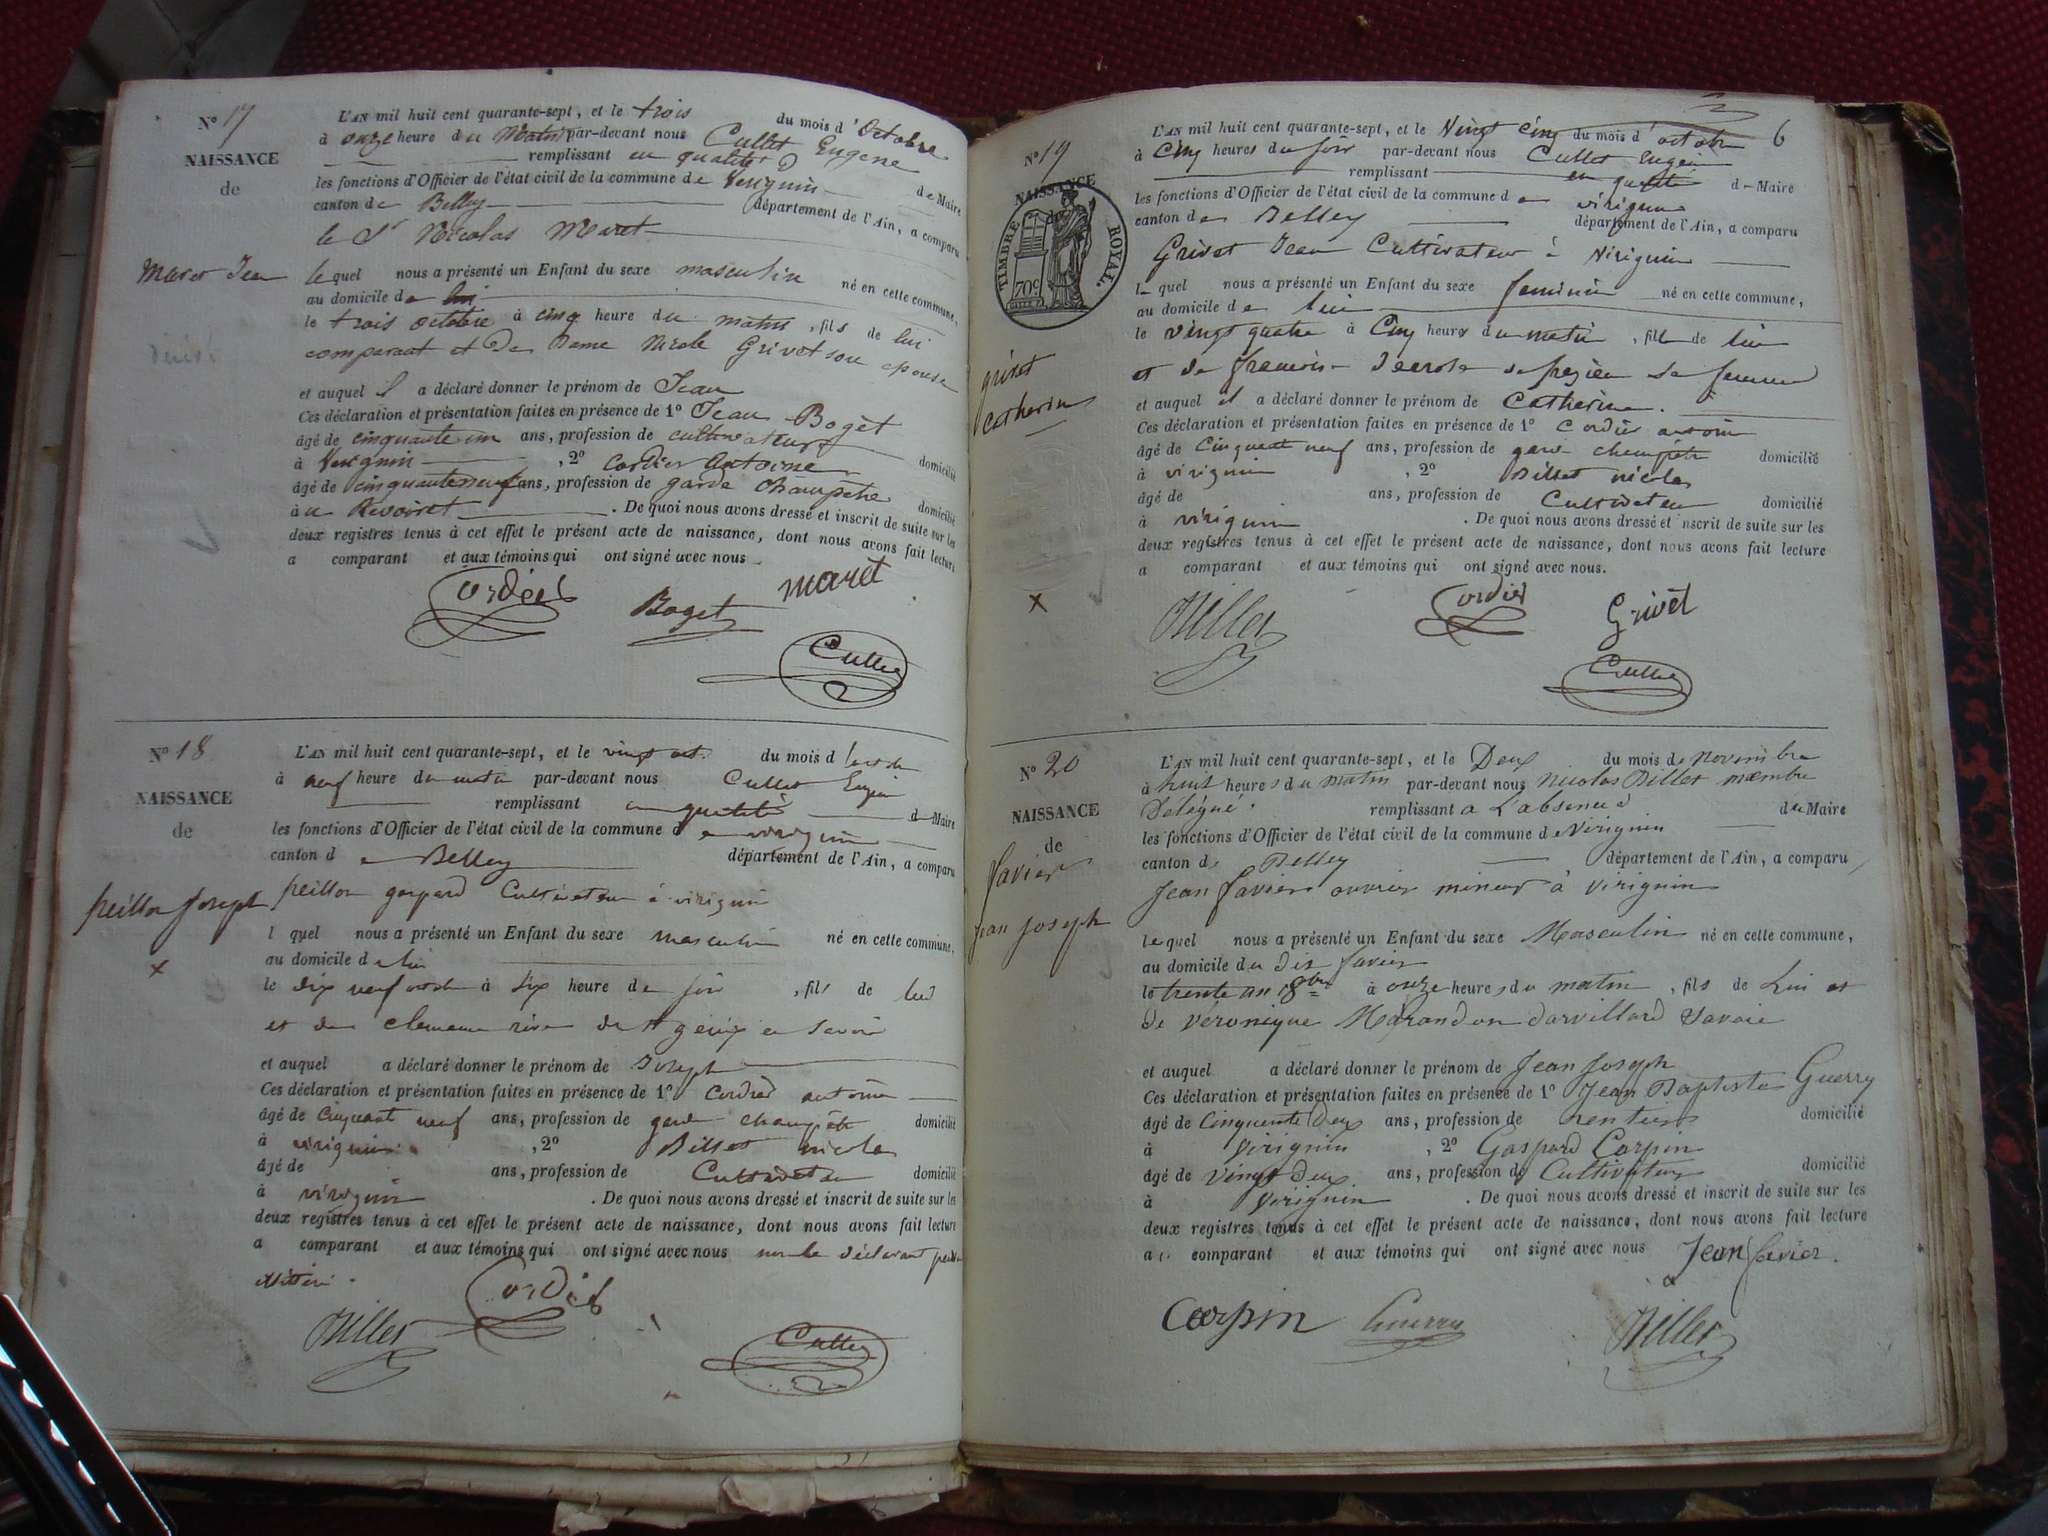 N° 17
NAISSANCE
de
Maret Jean
L'AN mil huit cent quarante-sept, et le trois du mois d'Octobre
à onze heure du Matin par-devant nous Cullet Eugene
remplissant en qualité
les fonctions d'Officier de l'état civil de la commune de Virignin de Maire
canton de Belley département de l'Ain, a comparu
le Sr Nicolas Maret
lequel nous a présenté un Enfant du sexe masculin né en cette commune,
au domicile de lui
le trois octobre à cinq heure du matin, fils de lui
comparant et de Dame Nicole Grivet son epouse
et auquel il a déclaré donner le prénom de Jean
Ces déclaration et présentation faites en présence de 1° Jean Boget
âgé de cinquante un ans, profession de cultivateur domicilié
à Virignin, 2° Cordier Antoine
âgé de cinquanteneuf ans, profession de garde champetre domicilié
à . De quoi nous avons dressé et inscrit de suite sur les
deux registres tenus à cet effet le présent acte de naissance, dont nous avons fait lecture
a comparant et aux témoins qui ont signé avec nous
Cordier Boget maret
Cullet
N° 18
NAISSANCE
de
peillon Joseph
x
L'AN mil huit cent quarante-sept, et le vingt oct. du mois d
à neuf heure du matin par-devant nous Cullet Eugein
remplissant en qualité de Maire
les fonctions d'Officier de l'état civil de la commune de virignin
canton de Belley département de l'Ain, a comparu
peillon gaspard Cultivateur à virignin
l quel nous a présenté un Enfant du sexe masculin né en cette commune,
au domicile de lui
le dix neuf octobre à six heure du soir, fils de lui
et de clemence de st genix en Savoie
et auquel a déclaré donner le prénom de Joseph
Ces déclaration et présentation faites en présence de 1° Cordier antoine
âgé de cinquant neuf ans, profession de garde champêtre domicilié
à virignin, 2° Billet nicolas
âgé de ans, profession de Cultivateur domicilié
à virignin . De quoi nous avons dressé et inscrit de suite sur les
deux registres tenus à cet effet le présent acte de naissance, dont nous avons fait lecture
a comparant et aux témoins qui ont signé avec nous non le déclarant
Cordier
Billet
Cullet
6
N° 19
NAISSANCE
de
TIMBRE ROYAL.
70c
grivet
catherine
x
L'AN mil huit cent quarante-sept, et le Vingt cinq du mois d'octobre
à Cinq heures du soir par-devant nous Cullet Eugein
remplissant en qualité de Maire
les fonctions d'Officier de l'état civil de la commune de virignin
canton de Belley département de l'Ain, a comparu
Grivet Jean Cultivateur à Virignin
le quel nous a présenté un Enfant du sexe feminin né en cette commune,
au domicile de lui
le vingt quatre à Cinq heures du matin, fille de lui
et de sa femme
et auquel il a déclaré donner le prénom de Catherine.
Ces déclaration et présentation faites en présence de 1° Cordier antoine
âgé de Cinquant neuf ans, profession de garde champêtre domicilié
à virignin, 2° Billet nicolas
âgé de ans, profession de Cultivateur domicilié
à virignin . De quoi nous avons dressé et inscrit de suite sur les
deux registres tenus à cet effet le présent acte de naissance, dont nous avons fait lecture
a comparant et aux témoins qui ont signé avec nous.
Billet Cordier Grivet
Cullet
N° 20
NAISSANCE
de
Favier
jean joseph
L'AN mil huit cent quarante-sept, et le Deux du mois de Novembre
à huit heures du matin par-devant nous Nicolas Billet membre
Délégué. remplissant a L'absence du Maire
les fonctions d'Officier de l'état civil de la commune de Virignin
canton de Belley département de l'Ain, a comparu
Jean Favier ouvrier mineur à Virignin
lequel nous a présenté un Enfant du sexe Masculin né en cette commune,
au domicile du dit favier
le trente un 8bre à onze heures du matin, fils de Lui et
de Véronique Marandon darvillard Savoie
et auquel a déclaré donner le prénom de Jean Joseph
Ces déclaration et présentation faites en présence de 1° Jean Baptiste Guerry
âgé de Cinquante Deux ans, profession de rentier domicilié
à Virignin, 2° Gaspard Carpin
âgé de vingt Deux ans, profession de Cultivateur domicilié
à Virignin . De quoi nous avons dressé et inscrit de suite sur les
deux registres tenus à cet effet le présent acte de naissance, dont nous avons fait lecture
a comparant et aux témoins qui ont signé avec nous Jean favier.
Carpin Guerry Billet